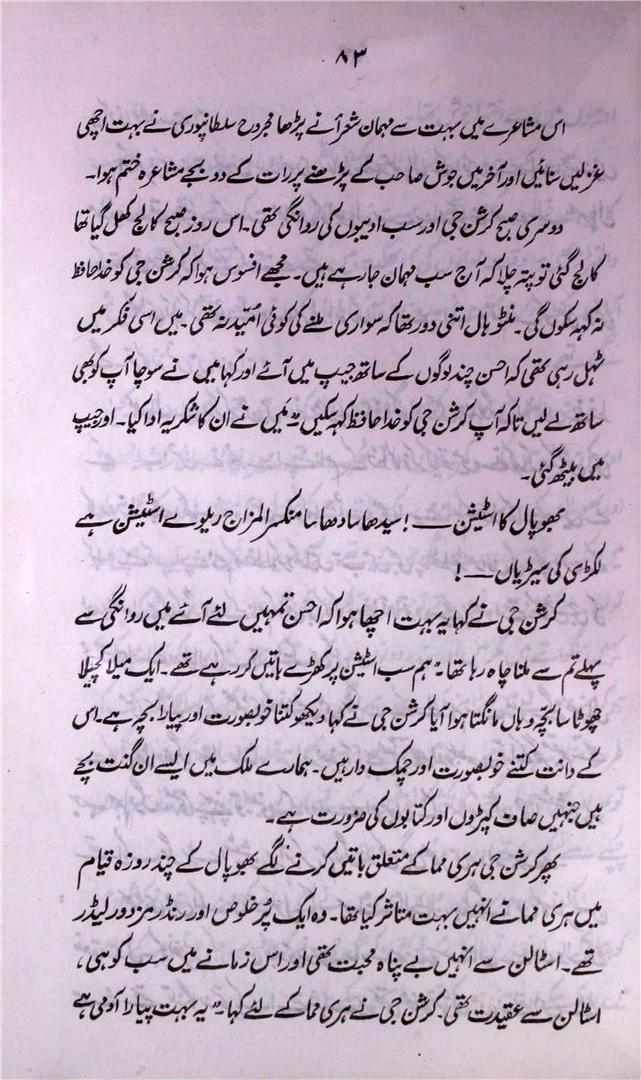 ۸۳
اس مشاعرے میں بہت سے مہمان شعرأ نے پڑھا مجروح سلطانپوری نے بہت اچھی
غزلیں سنائیں اور آخر میں جوش صاحب کے پڑھنے پر رات کے دو بجے مشاعرہ ختم ہوا۔
دوسری صبح کرشن جی اور سب ادیبوں کی روانگی تھی۔ اس روز صبح کالج کھل گیا تھا
کالج گئی تو پتہ چلا کہ آج سب مہمان جا رہے ہیں۔ مجھے افسوس ہوا کہ کرشن جی کو خدا حافظ
نہ کہہ سکوں گی۔ منٹو ہال اتنی دور تھا کہ سواری ملنے کی کوئی اُمّید نہ تھی۔ میں اسی فکر میں
ٹہل رہی تھی کہ احسن چند لوگوں کے ساتھ جیپ میں آئے اور کہا میں نے سوچا آپ کو بھی
ساتھ لے لیں تاکہ آپ کرشن جی کو خدا حافظ کہہ سکیں" میں نے ان کا شکریہ ادا کیا۔ اور جیپ
میں بیٹھ گئی۔
بھوپال کا اسٹیشن —! سیدھا سادھا سا منکسر المزاج ریلوے اسٹیشن ہے
لکڑی کی سیڑیاں —!
کرشن جی نے کہا یہ بہت اچھا ہوا کہ احسن تمہیں لئے آئے میں روانگی سے
پہلے تم سے ملنا چاہ رہا تھا۔" ہم سب اسٹیشن پر کھڑے باتیں کر رہے تھے۔ ایک میلا کچیلا
چھوٹا سا بچّہ وہاں مانگتا ہوا آیا کرشن جی نے کہا دیکھو کتنا خوبصورت اور پیارا بچہ ہے۔ اس
کے دانت کتنے خوبصورت اور چمک دار ہیں۔ ہمارے ملک میں ایسے ان گنت بچے
ہیں جنہیں صاف کپڑوں اور کتابوں کی ضرورت ہے۔
پھر کرشن جی ہری مما کے متعلق باتیں کرنے لگے بھوپال کے چند روزہ قیام
میں ہری مما نے انہیں بہت متاثر کیا تھا۔ وہ ایک پُر خلوص اور رنڈر مزدور لیڈر
تھے۔ اسٹالن سے انہیں بے پناہ محبت تھی اور اس زمانے میں سب کو ہی،
اسٹالن سے عقیدت تھی۔ کرشن جی نے ہری مما کے لئے کہا۔" یہ بہت پیارا آدمی ہے